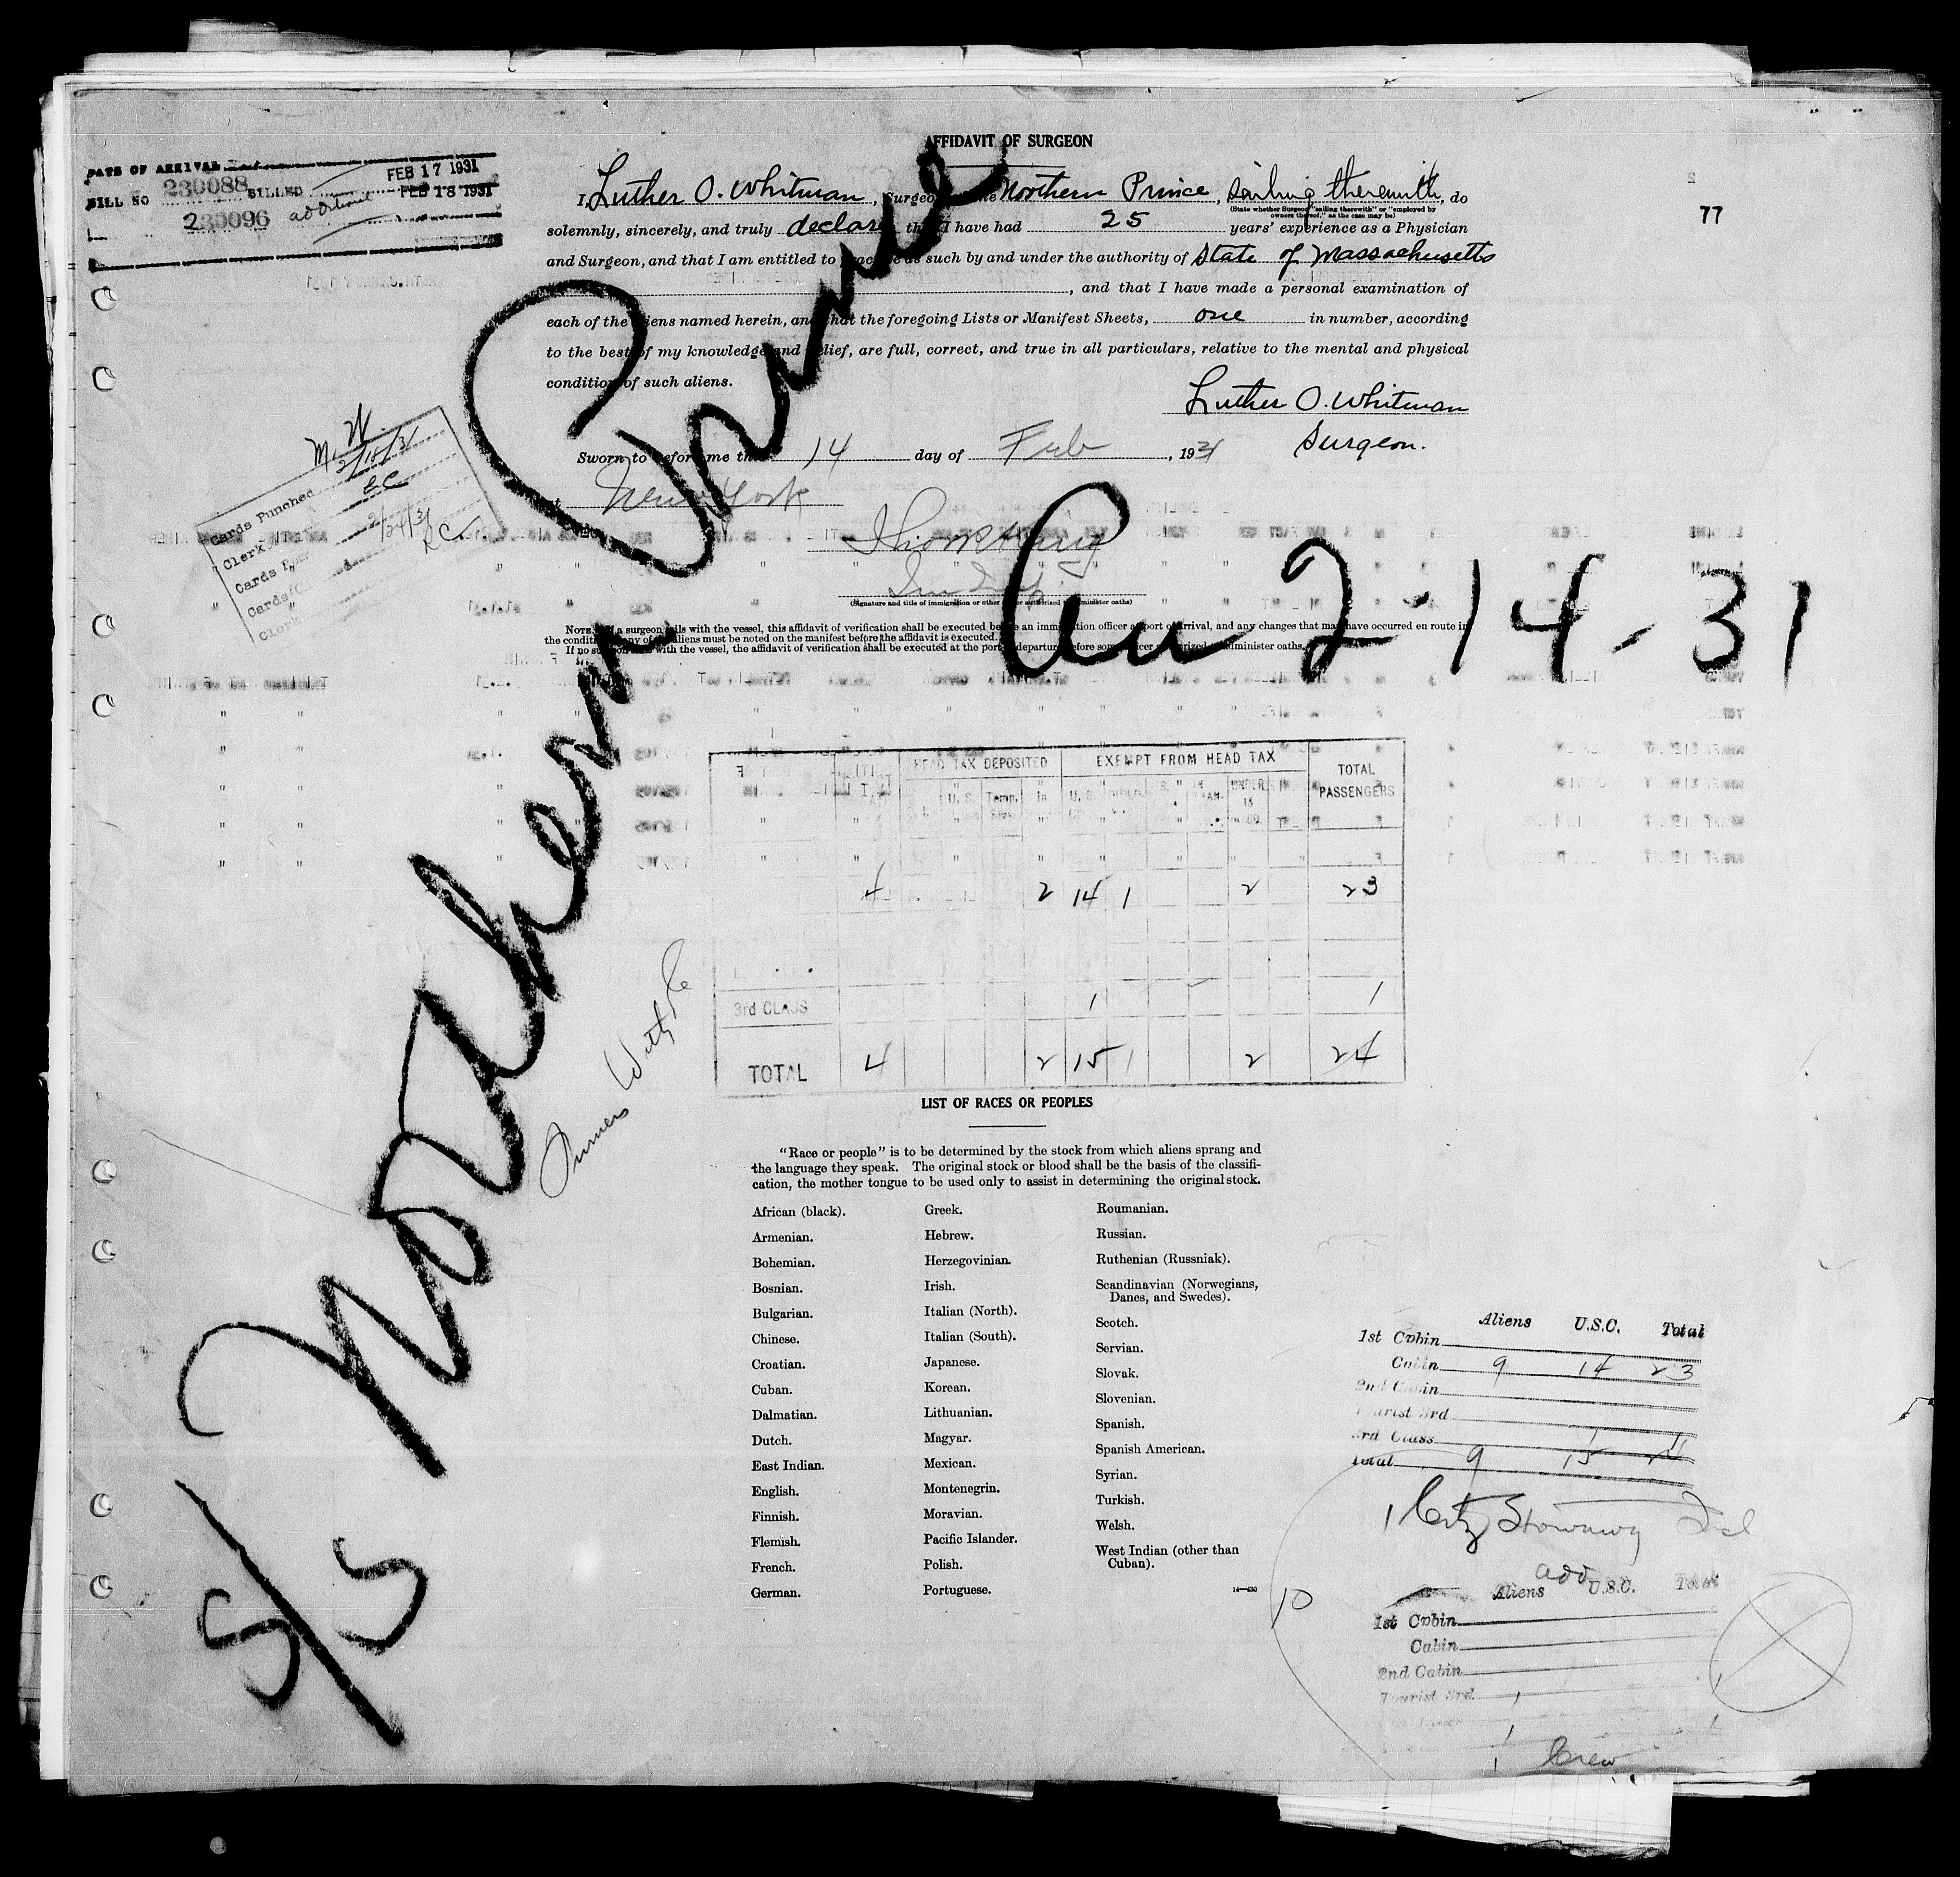 AFFIDAVIT OF SURGEON
DATE OF ARRIVAL FEB 17 1931
BILL NO 230088 BILLED FEB 18 1931
230096 additional
77
I, Luther O. Whitman, Surgeon Northern Prince, sailing therewith, do
(State whether Surgeon "sailing therewith" or "employed by
owners thereof," as the case may be)
solemnly, sincerely, and truly declare that I have had 25 years' experience as a Physician
and Surgeon, and that I am entitled to practice as such by and under the authority of State of Massachusetts
, and that I have made a personal examination of
each of the aliens named herein, and that the foregoing Lists or Manifest Sheets, one in number, according
to the best of my knowledge and belief, are full, correct, and true in all particulars, relative to the mental and physical
condition of such aliens.
Luther O. Whitman
Surgeon.
Sworn to before me this 14 day of Feb, 1931
at New York
(Signature and title of immigration or other officer authorized to administer oaths)
M. W.
2/18/31
Cards Punched
Clerk
2/24/31
Cards
Clerk
NOTE. If a surgeon sails with the vessel, this affidavit of verification shall be executed before an immigration officer at port of arrival, and any changes that may have occurred en route in
the condition of any of the aliens must be noted on the manifest before the affidavit is executed.
If no surgeon sails with the vessel, the affidavit of verification shall be executed at the port of departure before some officer authorized to administer oaths.
S/S Northern Prince
Arr 2-14-31
HEAD TAX DEPOSITED EXEMPT FROM HEAD TAX TOTAL PASSENGERS
4 2 14 1 2 23
3rd CLASS 1 1
TOTAL 4 2 15 1 2 24
LIST OF RACES OR PEOPLES
"Race or people" is to be determined by the stock from which aliens sprang and
the language they speak. The original stock or blood shall be the basis of the classifi-
cation, the mother tongue to be used only to assist in determining the original stock.
African (black).
Armenian.
Bohemian.
Bosnian.
Bulgarian.
Chinese.
Croatian.
Cuban.
Dalmatian.
Dutch.
East Indian.
English.
Finnish.
Flemish.
French.
German.
Greek.
Hebrew.
Herzegovinian.
Irish.
Italian (North).
Italian (South).
Japanese.
Korean.
Lithuanian.
Magyar.
Mexican.
Montenegrin.
Moravian.
Pacific Islander.
Polish.
Portuguese.
Roumanian.
Russian.
Ruthenian (Russniak).
Scandinavian (Norwegians,
Danes, and Swedes).
Scotch.
Servian.
Slovak.
Slovenian.
Spanish.
Spanish American.
Syrian.
Turkish.
Welsh.
West Indian (other than
Cuban).
14—430
Aliens U.S.C. Total
1st Cabin
Cabin 9 14 23
2nd Cabin
Tourist 3rd
3rd Class 1 1
Total 9 15 24
1 Citz Stowaway
add
10
Aliens U.S.C. Total
1st Cabin
Cabin
2nd Cabin
Tourist 3rd 1
1 1
1 Crew